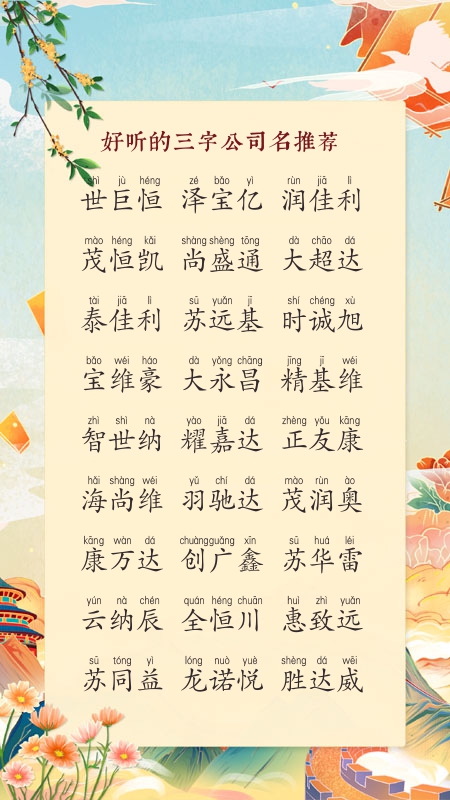 好听的三字公司名推荐
shì jù héng zé bǎo yì rùn jiā lì
世巨恒 泽宝亿 润佳利
mào héng kǎi shàng shèng tōng dà chāo dá
茂恒凯 尚盛通 大超达
tài jiā lì sū yuǎn jī shí chéng xù
泰佳利 苏远基 时诚旭
bǎo wéi háo dà yǒng chāng jīng jī wéi
宝维豪 大永昌 精基维
zhì shì nà yào jiā dá zhèng yǒu kāng
智世纳 耀嘉达 正友康
hǎi shàng wéi yǔ chí dá mào rùn ào
海尚维 羽驰达 茂润奥
kāng wàn dá chuàng guǎng xīn sū huá léi
康万达 创广鑫 苏华雷
yún nà chén quán héng chuān huì zhì yuǎn
云纳辰 全恒川 惠致远
sū tóng yì lóng nuò yuè shèng dá wēi
苏同益 龙诺悦 胜达威